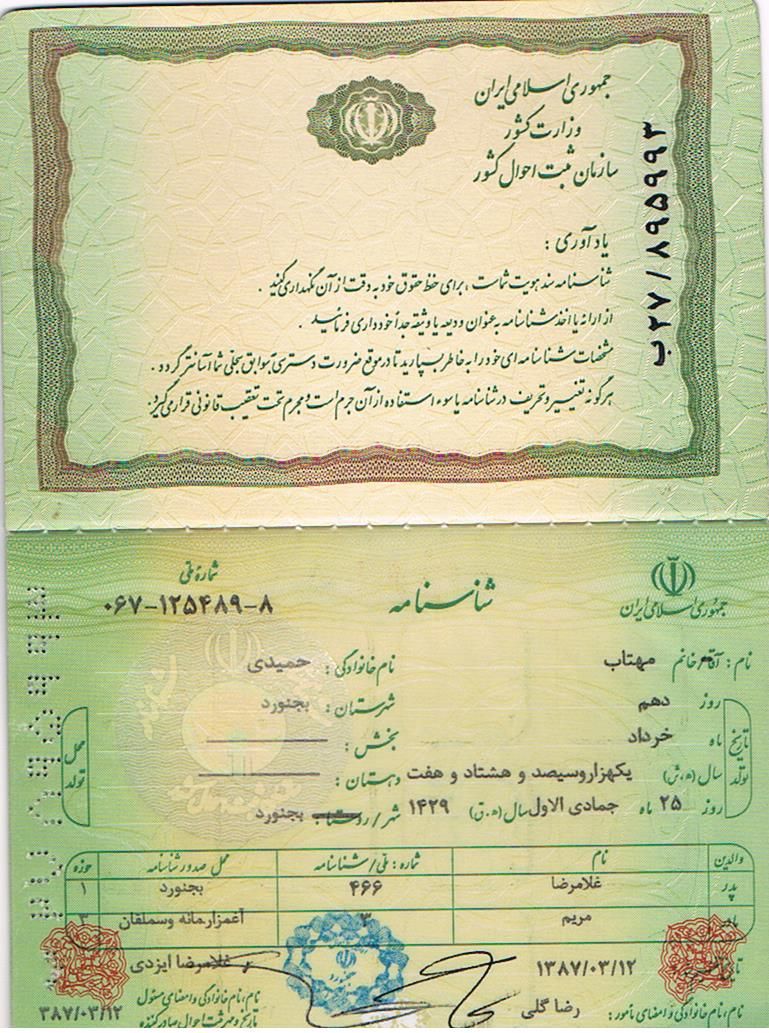 جمهوری اسلامی ایران
وزارت کشور
سازمان ثبت احوال کشور
ب ۲۷/۸۹۵۹۹۳
یادآوری :
شناسنامه سند هویت شماست ، برای حفظ حقوق خود به دقت از آن نگهداری کنید .
از ارائه یا اخذ شناسنامه به عنوان ودیعه یا وثیقه جداً خودداری فرمائید .
مشخصات شناسنامه ای خود را به خاطر بسپارید تا در موقع ضرورت دسترسی به سوابق سجلی شما آسانتر گردد .
هر گونه تغییر و تحریف در شناسنامه یا سوء استفاده از آن جرم است و مجرم تحت تعقیب قانونی قرار می گیرد .
جمهوری اسلامی ایران
شناسنامه
شمارهٔ ملی
۰۶۷-۱۲۵۴۸۹-۸
نام : آقا/خانم مهتاب نام خانوادگی : حمیدی
تاریخ تولد
روز دهم
ماه خرداد
سال (ه.ش) یکهزاروسیصد و هشتاد و هفت
روز ۲۵ ماه جمادی الاول سال (ه.ق) ۱۴۲۹
محل تولد
شهرستان : بجنورد
بخش :
دهستان :
شهر/روستا : بجنورد
والدین نام شماره : ملی/شناسنامه محل صدور شناسنامه حوزه
پدر غلامرضا ۴۶۶ بجنورد ۱
مادر مریم ۳ آغمزارمانه وسملقان ۳
۱۳۸۷/۰۳/۱۲ غلامرضا ایزدی
نام، نام خانوادگی و امضای مأمور : رضا گلی
نام، نام خانوادگی و امضای مسئول
۳۸۷/۰۳/۱۲